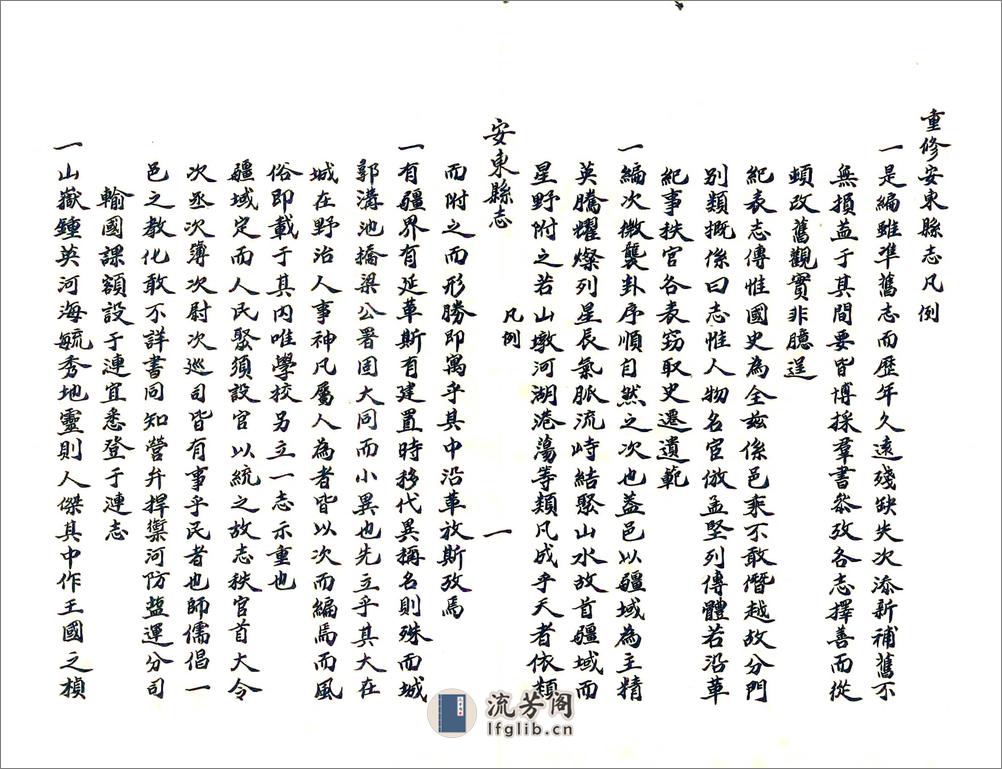 重修安東縣志凡例
一是編雖準舊志而歷年久遠殘缺失次添新補舊不
無損益于其間要皆博採羣書叅攷各志擇善而從
頓改舊觀實非臆逞
紀表志傳惟國史為全茲係邑乘不敢僭越故分門
別類概係曰志惟人物名宦倣孟堅列傳體若沿革
紀事秩官各表窃取史遷遺範
一編次微襲卦序順自然之次也蓋邑以疆域為主精
英騰耀燦列星辰氣脈流峙結聚山水故首疆域而
星野附之若山墩河湖港蕩等類凡成乎天者依類
安東縣志 凡例 一
而附之而形勝即寓乎其中沿革放斯攷焉
一有疆界有延革斯有建置時移代異稱名則殊而城
郭溝池橋梁公署固大同而小異也先立乎其大在
城在野治人事神凡屬人為者皆以次而編焉而風
俗即載于其內唯學校另立一志示重也
疆域定而人民聚須設官以統之故志秩官首大令
次丞次簿次尉次巡司皆有事乎民者也師儒倡一
邑之教化敢不詳書同知營弁捍禦河防鹽運分司
輸國課額設于漣宜悉登于漣志
一山嶽鍾英河海毓秀地靈則人傑其中作王國之楨
流芳阁
lfglib.cn